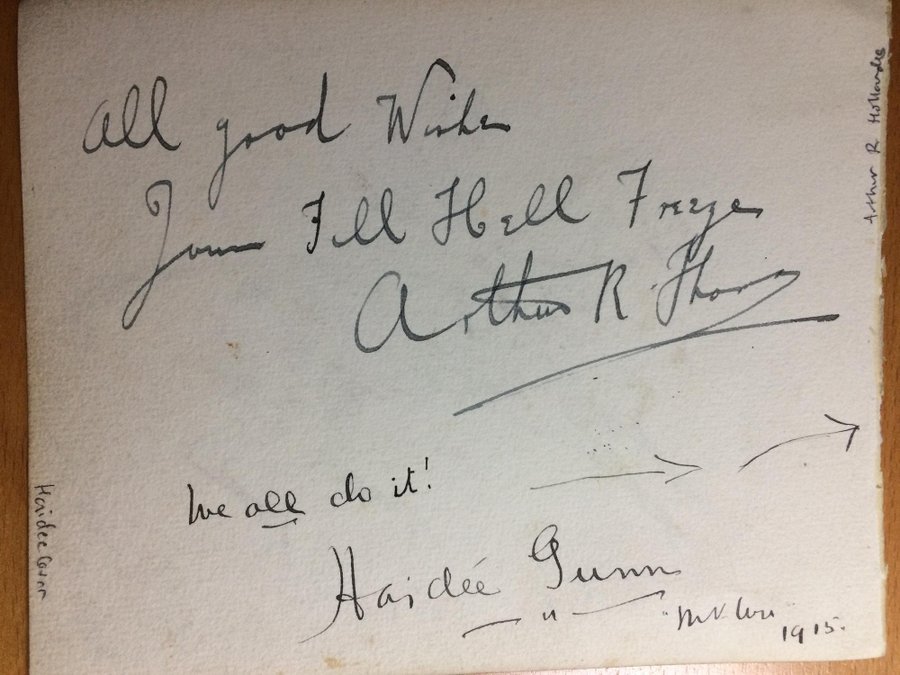 All good Wishes
Yours Till Hell Freezes
Arthur R
Arthur R Hollander
We all do it!
Haidée Gunn
1915.
Haidee Gunn